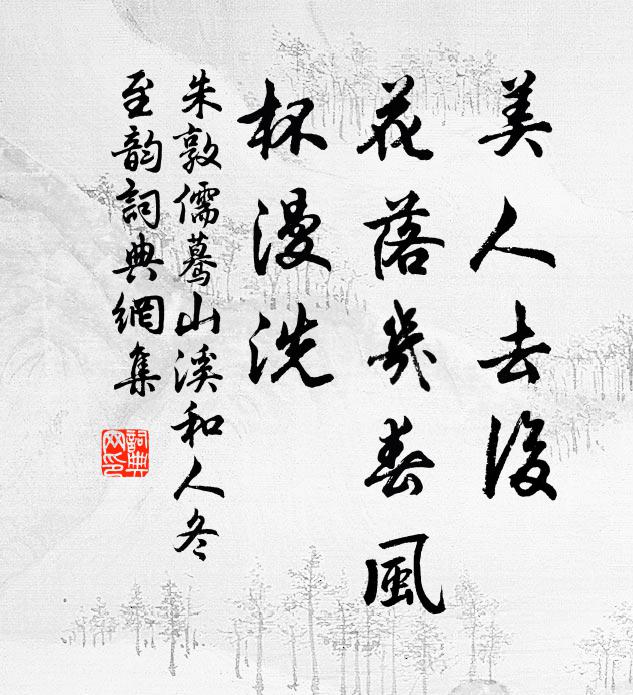 美人去後
花落幾春風
杯漫洗
朱敦儒驀山溪和人冬
至韵詞典網集
詞典
网印